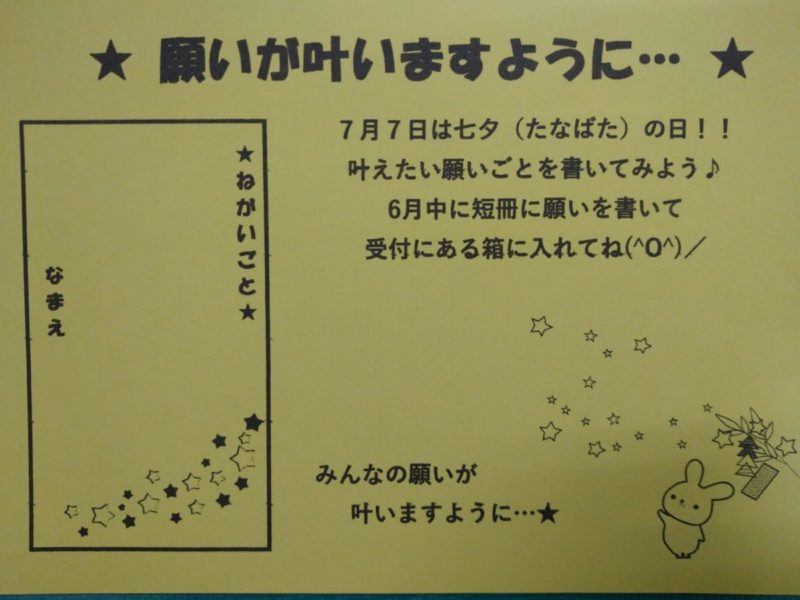 ★ 願いが叶いますように… ★
7月7日は七夕（たなばた）の日！！
叶えたい願いごとを書いてみよう♪
6月中に短冊に願いを書いて
受付にある箱に入れてね(^O^)／
★ねがいごと★
なまえ
みんなの願いが
叶いますように…★